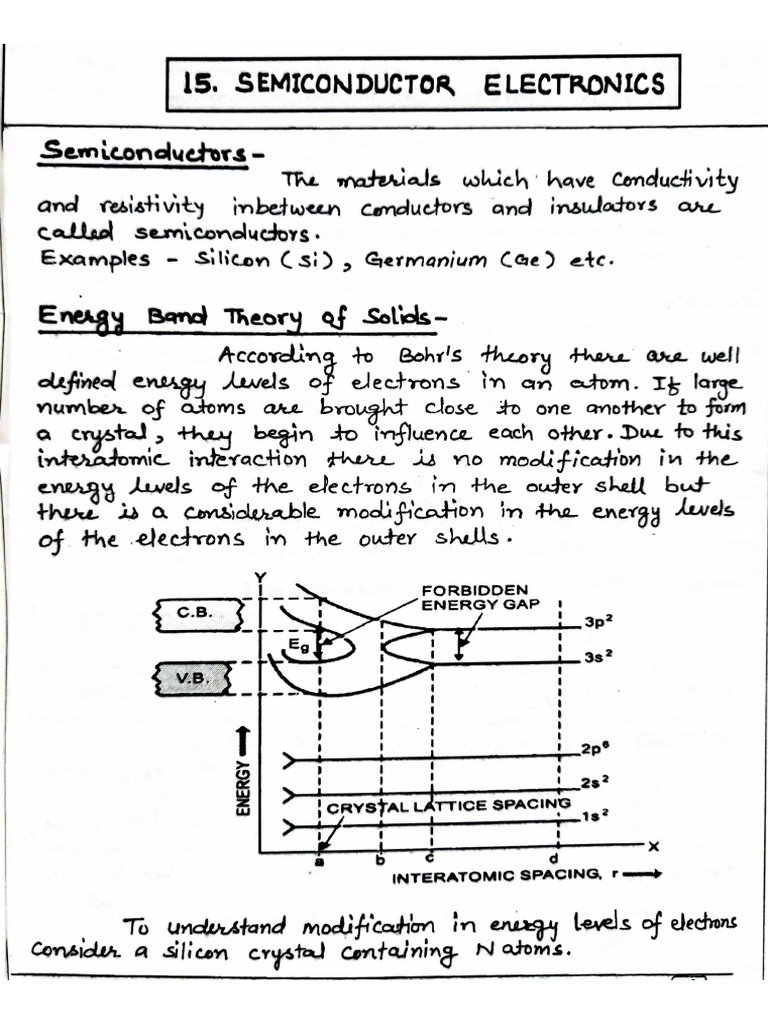 15. SEMICONDUCTOR ELECTRONICS
Semiconductors-
The materials which have conductivity
and resistivity inbetween conductors and insulators are
called semiconductors.
Examples - Silicon (Si), Germanium (Ge) etc.
Energy Band Theory of Solids-
According to Bohr's theory there are well
defined energy levels of electrons in an atom. If large
number of atoms are brought close to one another to form
a crystal, they begin to influence each other. Due to this
interatomic interaction there is no modification in the
energy levels of the electrons in the outer shell but
there is a considerable modification in the energy levels
of the electrons in the outer shells.
Y
FORBIDDEN
ENERGY GAP
C.B.
3p²
Eg
3s²
V.B.
2p⁶
2s²
CRYSTAL LATTICE SPACING
1s²
ENERGY
X
a b c d
INTERATOMIC SPACING, r
To understand modification in energy levels of electrons
Consider a silicon crystal containing N atoms.